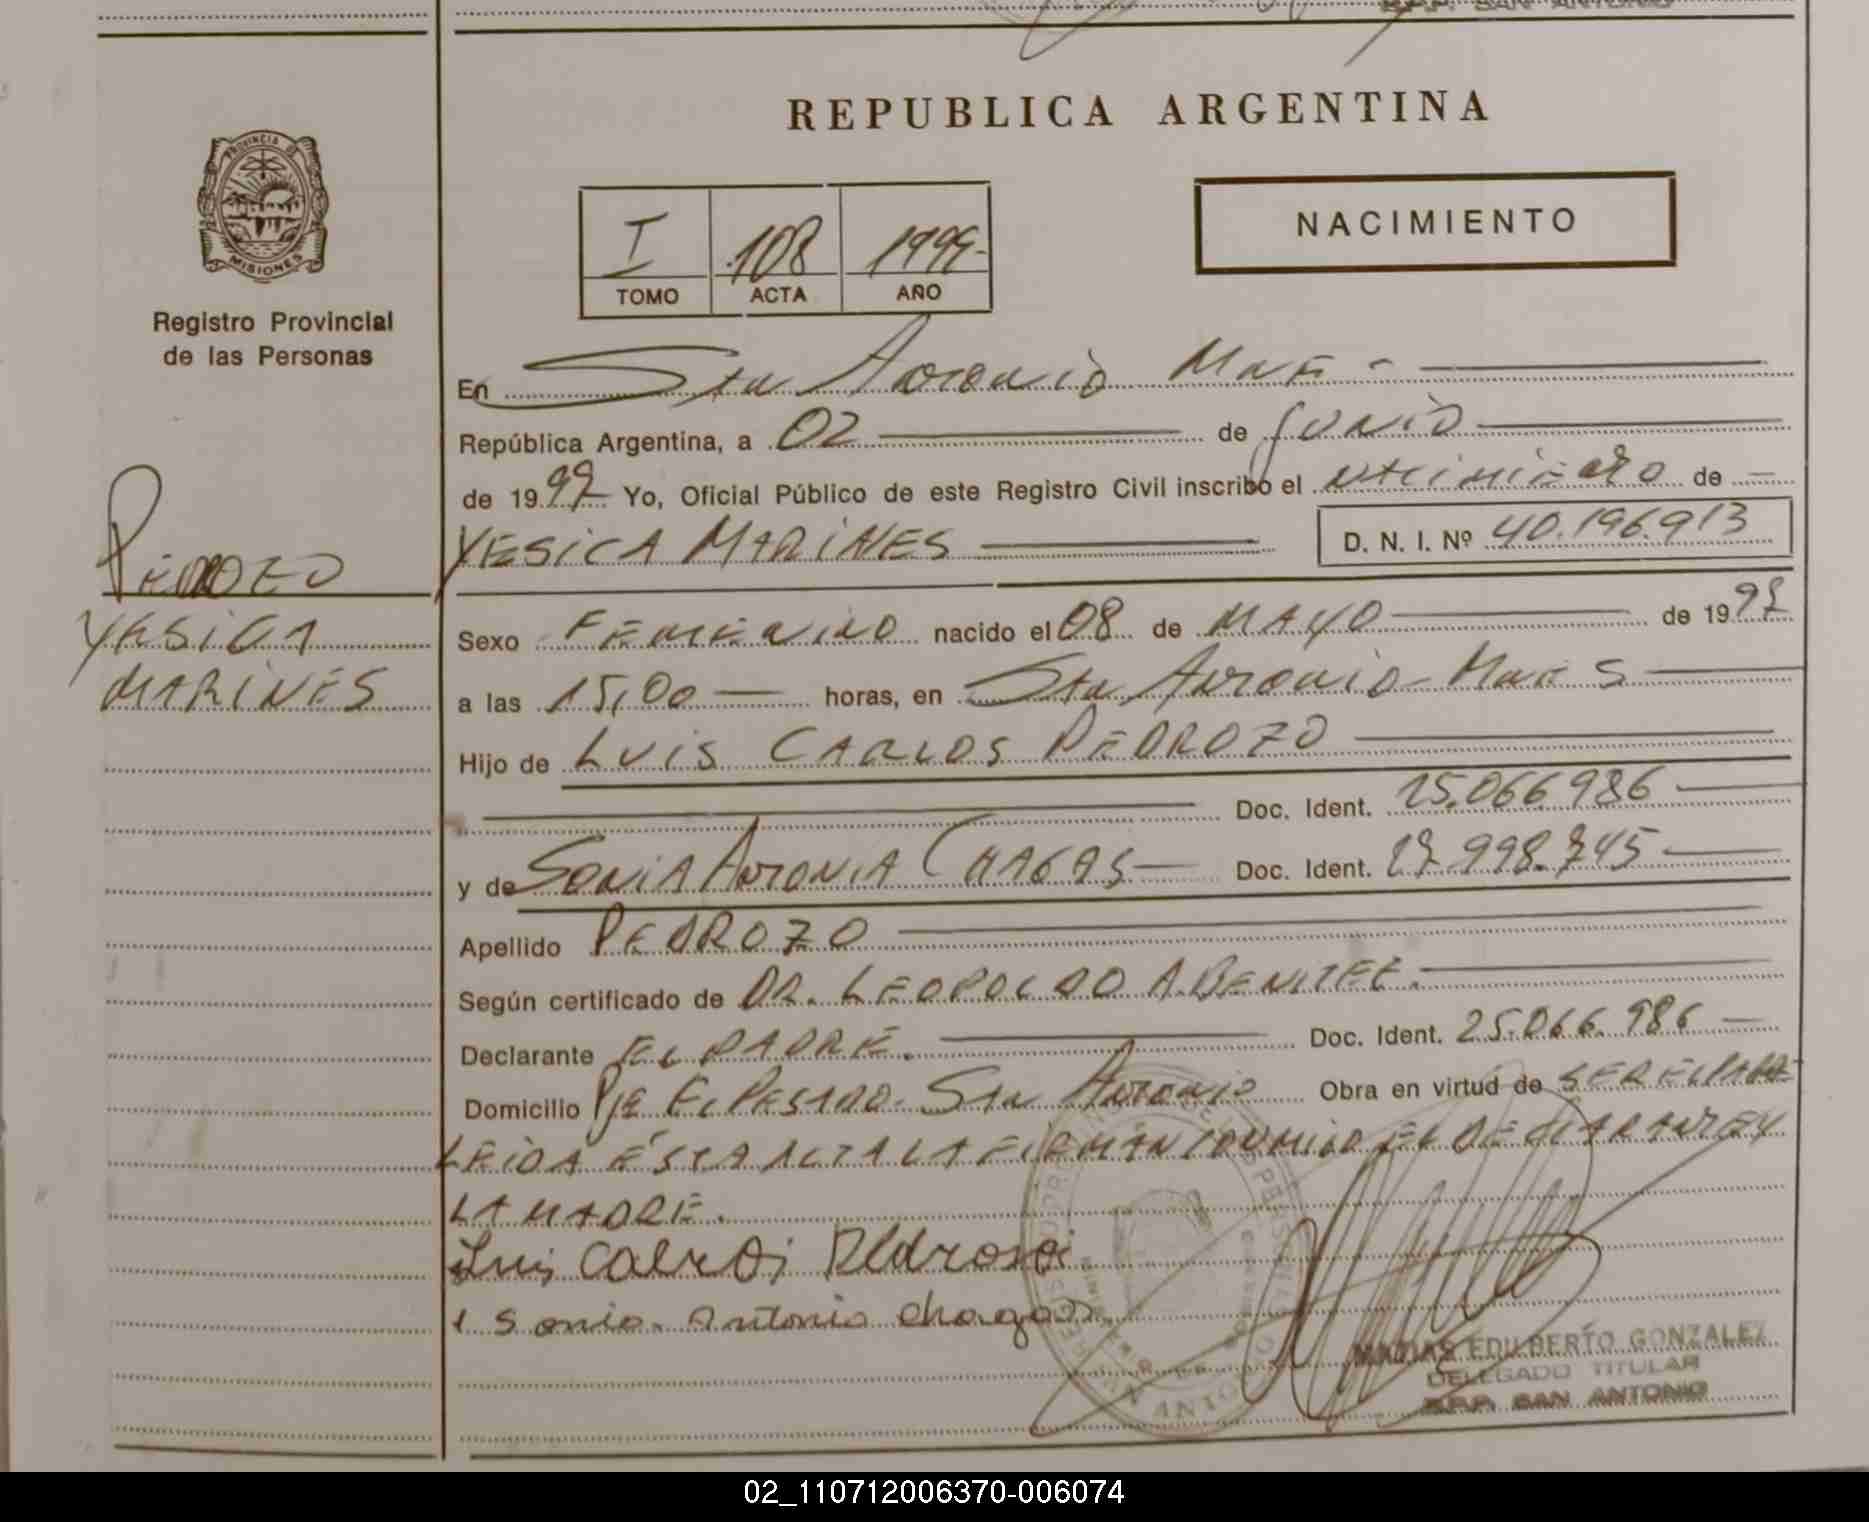 REPUBLICA ARGENTINA
PROVINCIA DE
MISIONES
Registro Provincial
de las Personas
NACIMIENTO
I 108
TOMO ACTA AÑO
En San Antonio Mnes -
República Argentina, a 02 de Junio
de 1997 Yo, Oficial Público de este Registro Civil inscribo el nacimiento de
YESICA MARINES D. N. I. Nº 40.196.913
PEDROZO
YESICA
MARINES
Sexo FEMENINO nacido el 08 de MAYO de 1997
a las 15,00 horas, en San Antonio - Mnes
Hijo de LUIS CARLOS PEDROZO
Doc. Ident. 25.066.986
y de SONIA ANTONIA CHAGAS Doc. Ident. 17.998.745
Apellido PEDROZO
Según certificado de DR. LEOPOLDO A. BENITEZ.
Declarante EL PADRE. Doc. Ident. 25.066.986
Domicilio Pje EL PESADO - San Antonio Obra en virtud de SER EL PADRE
LEIDA ÉSTA ACTA LA FIRMAN CONMIGO EL DECLARANTE Y
LA MADRE.
Luis Pedroso
Sonia Antonia chagas
MATIAS EDILBERTO GONZALEZ
DELEGADO TITULAR
R.P.P. SAN ANTONIO
02_110712006370-006074